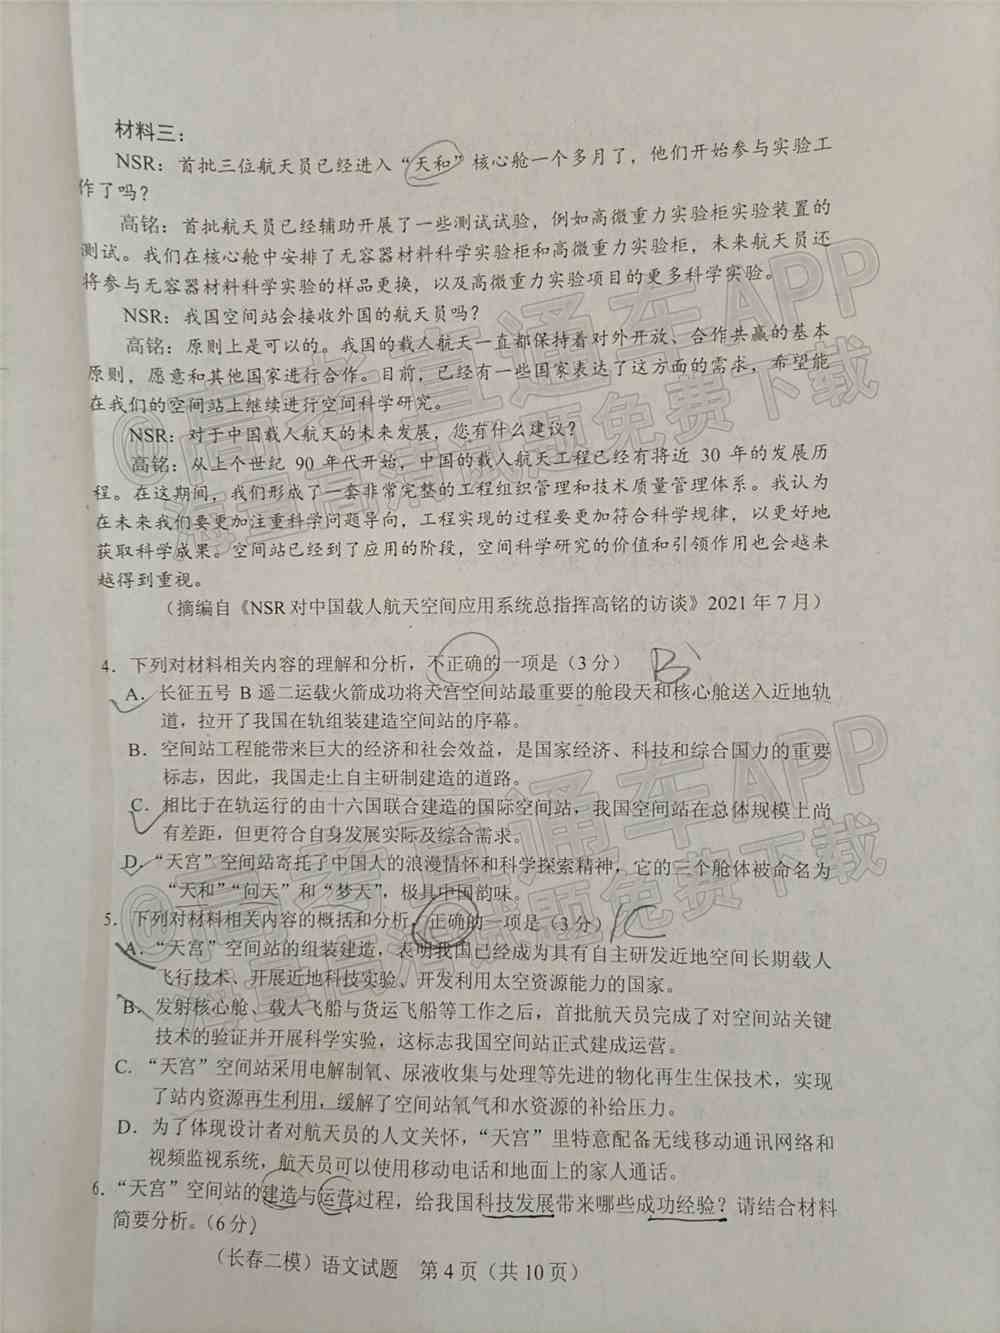 材料三：
NSR：首批三位航天员已经进入“天和”核心舱一个多月了，他们开始参与实验工
作了吗？
高铭：首批航天员已经辅助开展了一些测试试验，例如高微重力实验柜实验装置的
测试。我们在核心舱中安排了无容器材料科学实验柜和高微重力实验柜，未来航天员还
将参与无容器材料科学实验的样品更换，以及高微重力实验项目的更多科学实验。
NSR：我国空间站会接收外国的航天员吗？
高铭：原则上是可以的。我国的载人航天一直都保持着对外开放、合作共赢的基本
原则，愿意和其他国家进行合作。目前，已经有一些国家表达了这方面的需求，希望能
在我们的空间站上继续进行空间科学研究。
NSR：对于中国载人航天的未来发展，您有什么建议？
高铭：从上个世纪 90 年代开始，中国的载人航天工程已经有将近 30 年的发展历
程。在这期间，我们形成了一套非常完整的工程组织管理和技术质量管理体系。我认为
在未来我们要更加注重科学问题导向，工程实现的过程要更加符合科学规律，以更好地
获取科学成果。空间站已经到了应用的阶段，空间科学研究的价值和引领作用也会越来
越得到重视。
（摘编自《NSR 对中国载人航天空间应用系统总指挥高铭的访谈》2021 年 7 月）
4．下列对材料相关内容的理解和分析，不正确的一项是（3 分） B
A．长征五号 B 遥二运载火箭成功将天宫空间站最重要的舱段天和核心舱送入近地轨
道，拉开了我国在轨组装建造空间站的序幕。
B．空间站工程能带来巨大的经济和社会效益，是国家经济、科技和综合国力的重要
标志，因此，我国走上自主研制建造的道路。
C．相比于在轨运行的由十六国联合建造的国际空间站，我国空间站在总体规模上尚
有差距，但更符合自身发展实际及综合需求。
D．“天宫”空间站寄托了中国人的浪漫情怀和科学探索精神，它的三个舱体被命名为
“天和”“问天”和“梦天”，极具中国韵味。
5．下列对材料相关内容的概括和分析，正确的一项是（3 分） C
A．“天宫”空间站的组装建造，表明我国已经成为具有自主研发近地空间长期载人
飞行技术、开展近地科技实验、开发利用太空资源能力的国家。
B．发射核心舱、载人飞船与货运飞船等工作之后，首批航天员完成了对空间站关键
技术的验证并开展科学实验，这标志我国空间站正式建成运营。
C．“天宫”空间站采用电解制氧、尿液收集与处理等先进的物化再生生保技术，实现
了站内资源再生利用，缓解了空间站氧气和水资源的补给压力。
D．为了体现设计者对航天员的人文关怀，“天宫”里特意配备无线移动通讯网络和
视频监视系统，航天员可以使用移动电话和地面上的家人通话。
6．“天宫”空间站的建造与运营过程，给我国科技发展带来哪些成功经验？请结合材料
简要分析。（6 分）
（长春二模）语文试题 第 4 页（共 10 页）